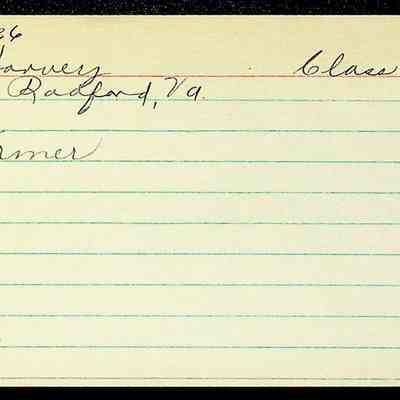 26
Harvey Class
Radford, Va.
rmer